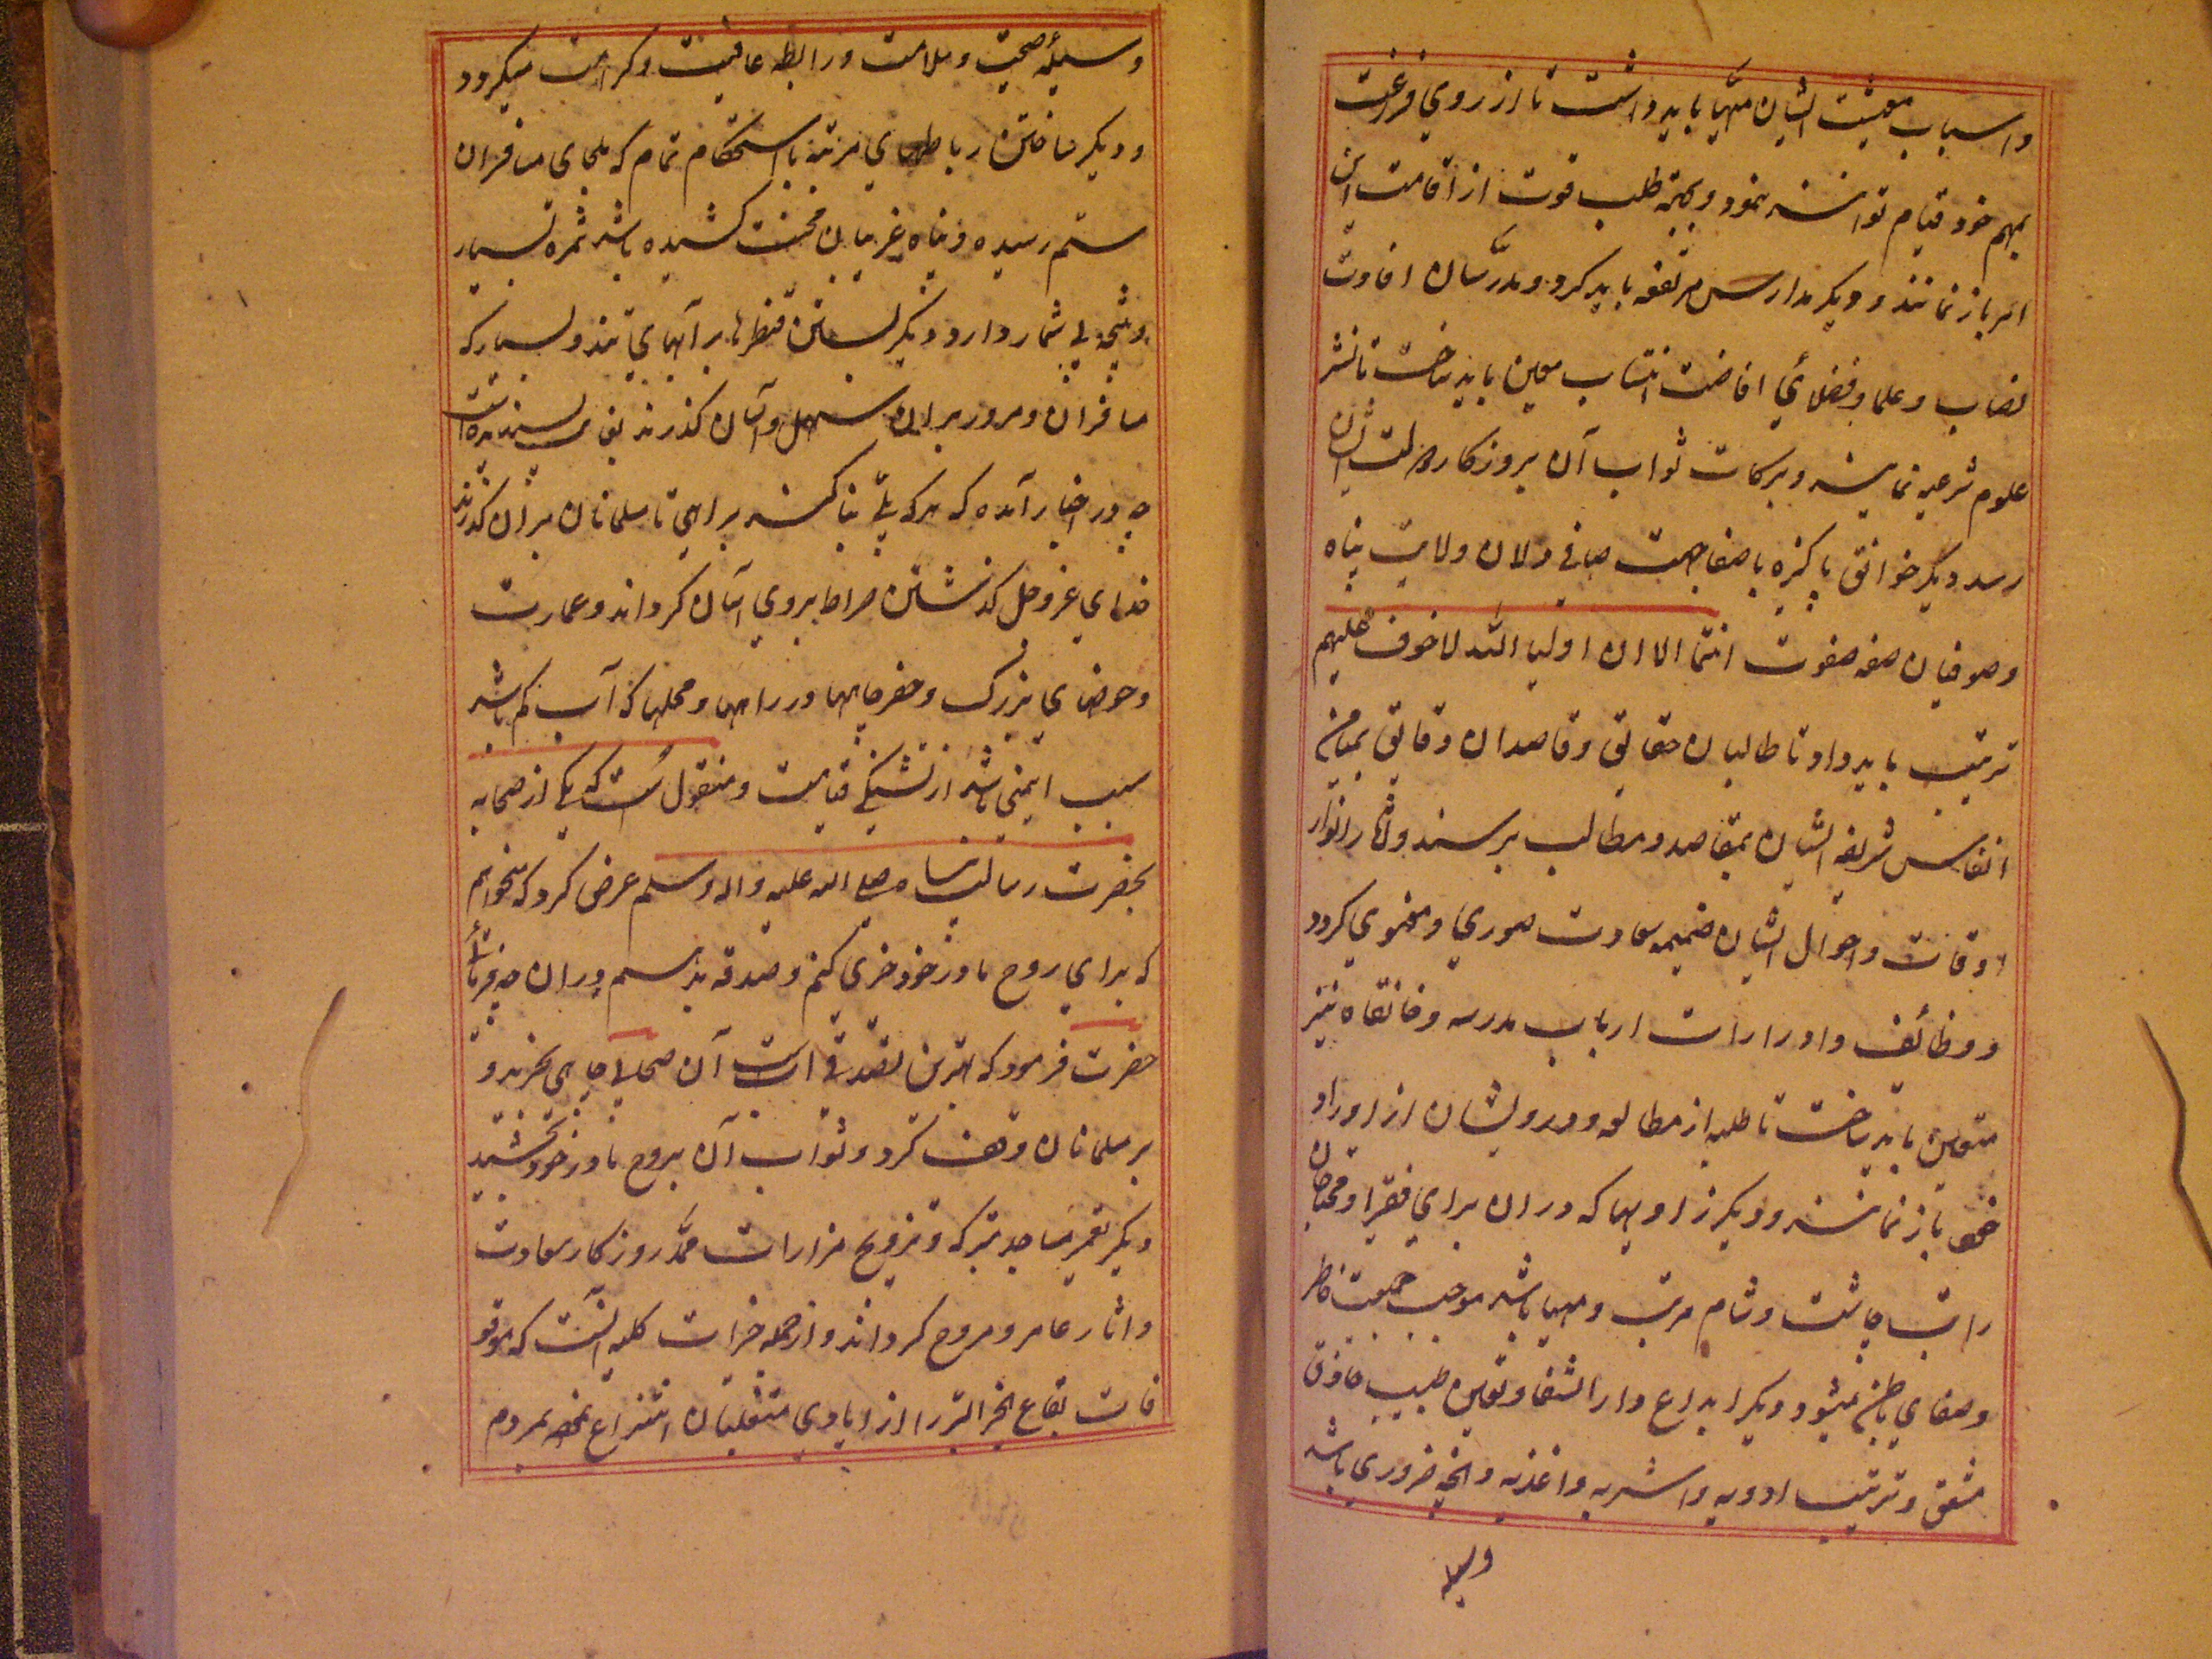 و اسباب معیشت ایشان مهیا باید داشت تا از روی فراغت
بمهم خود قیام توانند نمود و بجهة طلب قوت از اقامت این
امر باز نمانند و دیگر مدارس مرتفعه باید کرد و مدرسان افادت
نصاب و علما و فضلای افاضت انتساب معین باید ساخت تا نشر
علوم شرعیه نمایند و برکات ثواب آن بروزکار دولت ایشان
رسد دیگر خوانق پاکیزه با صفا جهت صافی دلان ولایت پناه
و صوفیان صفه صفوت انتما الا ان اولیا الله لا خوف علیهم
ترتیب باید داد تا طالبان حقایق و قاصدان دقایق بمیامن
انفاس شریفه ایشان بمقاصد و مطالب برسند و آثار انوار
اوقات و احوال ایشان ضمیمه سعادت صوری و معنوی کردد
و وظائف و اورارات ارباب مدرسه و خانقاه نیز
متعین باید ساخت تا طلبه از مطالعه و درویشان از اوراد
خود باز نمانند و دیگر زاویهها که دران برای فقرا و محتاجان
راتب چاشت و شام مرتب و مهیا باشد موجب جمعیت خاطر
و صفای باطن میشود دیگر ابداع دار الشفا و تعیین طبیب حاذق
مشفق و ترتیب ادویه و اشربه و اغذیه و انچه ضروری باشد
وسیله
وسیلهٔ صحت و سلامت و رابطه عافیت و کرامت میکردد
و دیگر ساختن رباطهای مرتبه با استحکام تمام که ملجای مسافران
ستم رسیده و پناه غریبان محنت کشیده باشد ثمره بسیار
و نتیجه بی شمار دارد و دیگر بستن قنطرها بر آبهای تند و بسیار که
مسافران و مرور بران سهل و آسان کذرند بغایت پسندیده است
چه در اخبار آمده که هرکه پلی بنا کند براهی تا مسلمانان بران کذرند
خدای عز و جل کذشتن صراط بروی آسان کرداند و عمارت
و حوضهای بزرک و حفر چاهها در راهها و محلها که آب کم باشد
سبب ایمنی باشد از تشنکی قیامت و منقول است که یکی از صحابه
بحضرت رسالت پناه صلی الله علیه واله وسلم عرض کرد که میخواهم
که برای روح مادر خود خیری کنم و صدقه بدهم دران چه فرمائی
حضرت فرمود که بهترین تصدق آب است آن صحابی چاهی بخرید و
بر مسلمانان وقف کرد و ثواب آن بروح مادر خود بخشید
دیگر تعمیر مساجد متبرکه و ترویج مزارات ممد روزکار سعادت
و اثار عامر و مروج کرداند و از جمله خیرات کلیه آنست که موقو
فات بقاع الخیر البر را از ایادی متغلبان انتزاع نموده بمردم